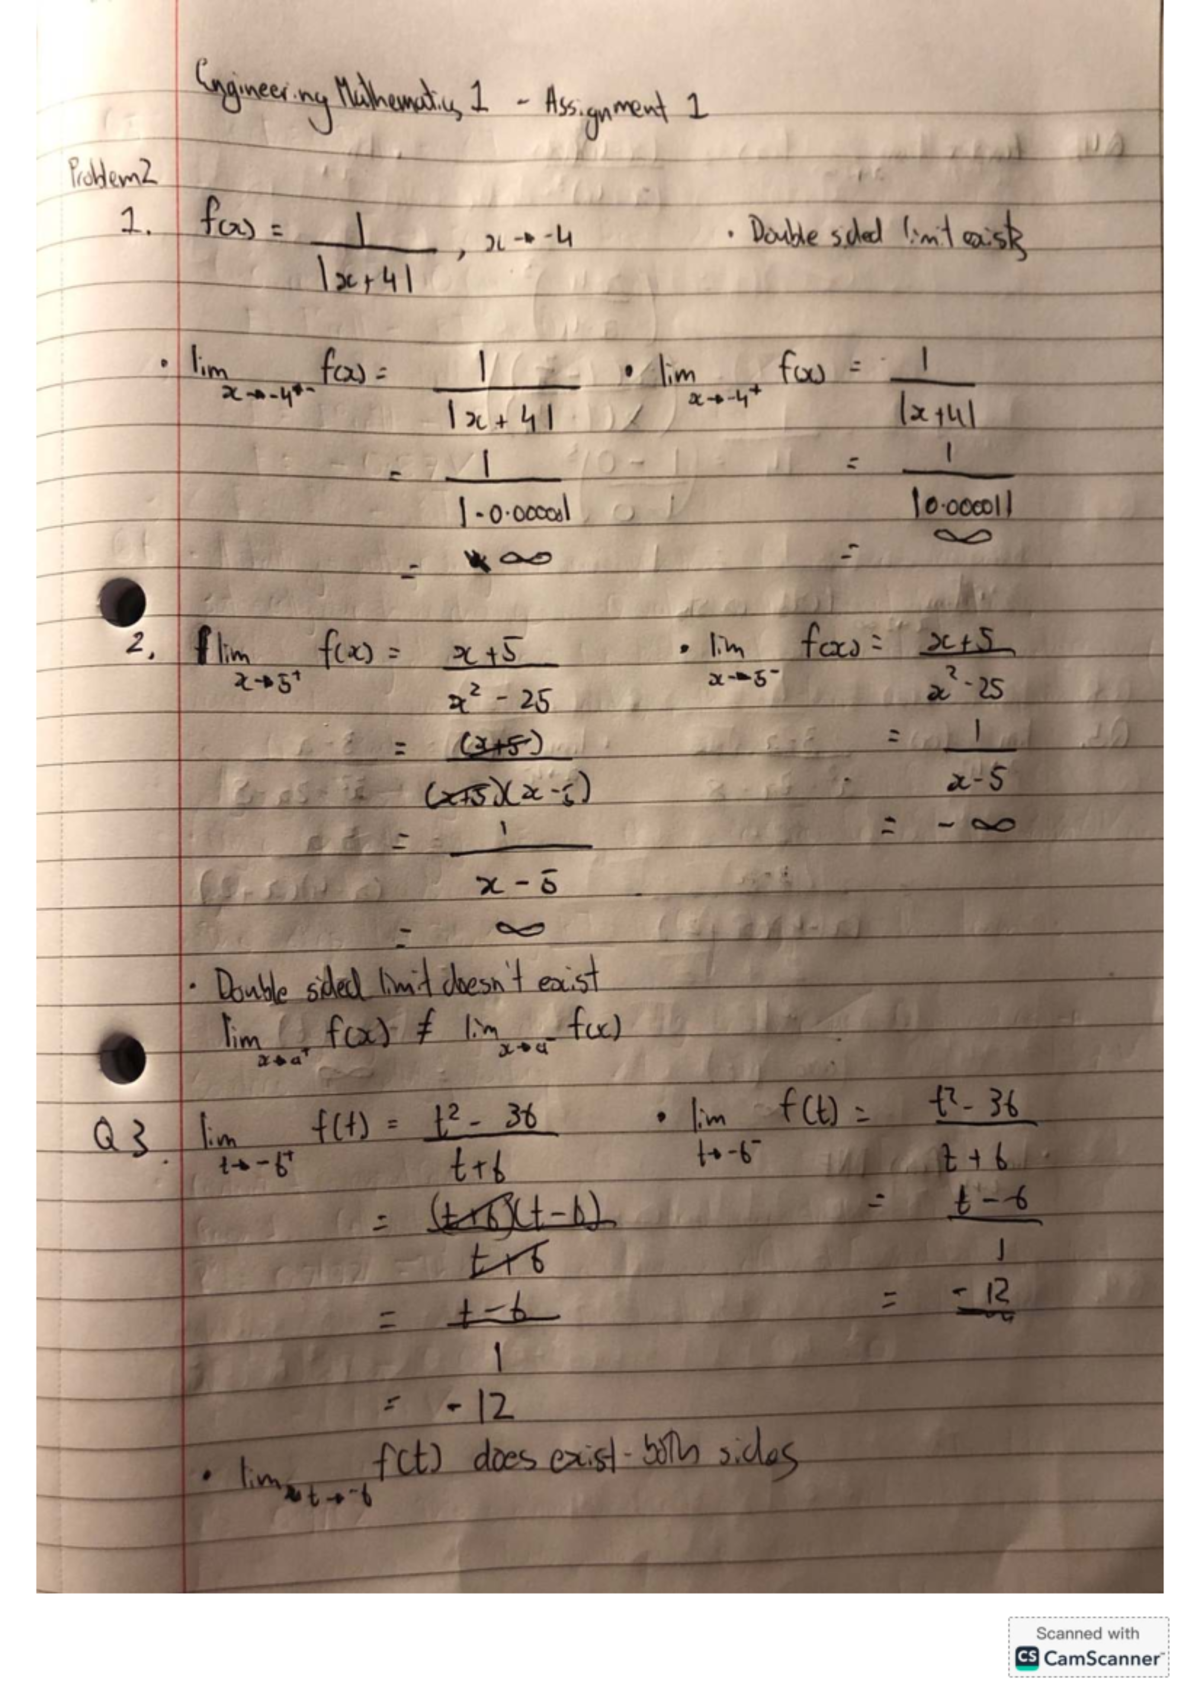 Engineering Mathematics 1 - Assignment 1
Problem 2
1. f(x) = 1 / |x+4| , x → -4 · Double sided limit exists
· lim x→-4- f(x) = 1 / |x+4| · lim x→-4+ f(x) = 1 / |x+4|
= 1 / |-0.00001| = 1 / |0.00001|
= ∞ = ∞
2. lim x→5+ f(x) = x+5 / x² - 25 · lim x→5- f(x) = x+5 / x² - 25
= (x+5) / (x+5)(x-5) = 1 / x-5
= 1 / x-5 = -∞
= ∞
· Double sided limit doesn't exist
lim x→a+ f(x) ≠ lim x→a- f(x)
Q3. lim t→-6+ f(t) = t² - 36 / t+6 · lim t→-6- f(t) = t² - 36 / t+6
= (t+6)(t-6) / t+6 = t-6 / 1
= t-6 / 1 = -12
= -12
· lim t→-6 f(t) does exist - both sides
Scanned with
CS CamScanner